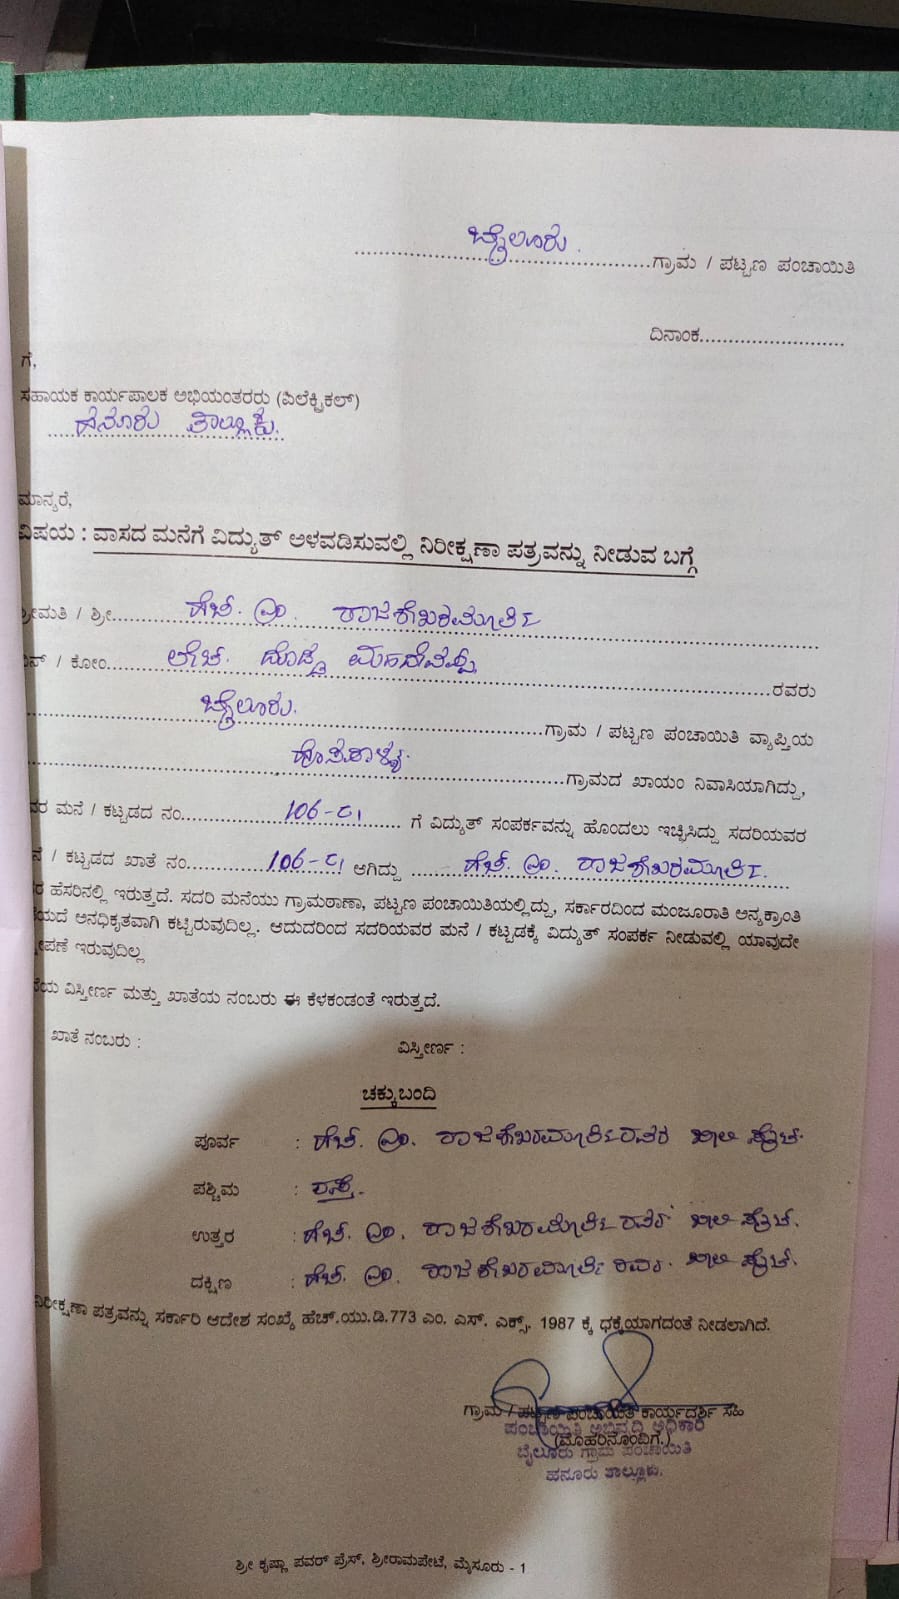 ಬೈಲೂರು
....................ಗ್ರಾಮ / ಪಟ್ಟಣ ಪಂಚಾಯಿತಿ
ದಿನಾಂಕ.........................
ಗೆ,
ಸಹಾಯಕ ಕಾರ್ಯಪಾಲಕ ಅಭಿಯಂತರರು (ಎಲೆಕ್ಟ್ರಿಕಲ್)
ಹನೂರು ತಾಲ್ಲೂಕು.
ಮಾನ್ಯರೆ,
ವಿಷಯ : ವಾಸದ ಮನೆಗೆ ವಿದ್ಯುತ್ ಅಳವಡಿಸುವಲ್ಲಿ ನಿರೀಕ್ಷಣಾ ಪತ್ರವನ್ನು ನೀಡುವ ಬಗ್ಗೆ
ಶ್ರೀಮತಿ / ಶ್ರೀ.... ಹೆಚ್. ಎಂ. ರಾಜಶೇಖರಮೂರ್ತಿ
/ ಕೋಂ.... ದೊಡ್ಡ ಮಹದೇವಪ್ಪ ....ರವರು
ಬೈಲೂರು. ....ಗ್ರಾಮ / ಪಟ್ಟಣ ಪಂಚಾಯಿತಿ ವ್ಯಾಪ್ತಿಯ
....ಗ್ರಾಮದ ಖಾಯಂ ನಿವಾಸಿಯಾಗಿದ್ದು,
ಮನೆ / ಕಟ್ಟಡದ ನಂ.... 106-ಲ1 .... ಗೆ ವಿದ್ಯುತ್ ಸಂಪರ್ಕವನ್ನು ಹೊಂದಲು ಇಚ್ಛಿಸಿದ್ದು ಸದರಿಯವರ
/ ಕಟ್ಟಡದ ಖಾತೆ ನಂ.... 106-ಲ1 ಆಗಿದ್ದು ಹೆಚ್. ಎಂ. ರಾಜಶೇಖರಮೂರ್ತಿ.
ಹೆಸರಿನಲ್ಲಿ ಇರುತ್ತದೆ. ಸದರಿ ಮನೆಯು ಗ್ರಾಮಠಾಣಾ, ಪಟ್ಟಣ ಪಂಚಾಯಿತಿಯಲ್ಲಿದ್ದು, ಸರ್ಕಾರದಿಂದ ಮಂಜೂರಾತಿ ಅನ್ಯಕ್ರಾಂತಿ
ಅನಧಿಕೃತವಾಗಿ ಕಟ್ಟಿರುವುದಿಲ್ಲ. ಆದುದರಿಂದ ಸದರಿಯವರ ಮನೆ / ಕಟ್ಟಡಕ್ಕೆ ವಿದ್ಯುತ್ ಸಂಪರ್ಕ ನೀಡುವಲ್ಲಿ ಯಾವುದೇ
ಇರುವುದಿಲ್ಲ
ವಿಸ್ತೀರ್ಣ ಮತ್ತು ಖಾತೆಯ ನಂಬರು ಈ ಕೆಳಕಂಡಂತೆ ಇರುತ್ತದೆ.
ಖಾತೆ ನಂಬರು : ವಿಸ್ತೀರ್ಣ :
ಚಕ್ಕುಬಂದಿ
ಪೂರ್ವ : ಹೆಚ್. ಎಂ. ರಾಜಶೇಖರಮೂರ್ತಿರವರ ಖಾಲಿ ಸೈಟ್.
ಪಶ್ಚಿಮ : ರಸ್ತೆ.
ಉತ್ತರ : ಹೆಚ್. ಎಂ. ರಾಜಶೇಖರಮೂರ್ತಿ ರವರ ಖಾಲಿ ಸೈಟ್.
ದಕ್ಷಿಣ : ಹೆಚ್. ಎಂ. ರಾಜಶೇಖರಮೂರ್ತಿ ರವರ ಖಾಲಿ ಸೈಟ್.
ನಿರೀಕ್ಷಣಾ ಪತ್ರವನ್ನು ಸರ್ಕಾರಿ ಆದೇಶ ಸಂಖ್ಯೆ ಹೆಚ್.ಯು.ಡಿ.773 ಎಂ. ಎಸ್. ಎಕ್ಸ್. 1987 ಕ್ಕೆ ಧಕ್ಕೆಯಾಗದಂತೆ ನೀಡಲಾಗಿದೆ.
ಗ್ರಾಮ / ಪಟ್ಟಣ ಪಂಚಾಯಿತಿ ಕಾರ್ಯದರ್ಶಿ ಸಹಿ
ಪಂಚಾಯಿತಿ ಅಭಿವೃದ್ಧಿ ಅಧಿಕಾರಿ
(ಮೊಹರಿನೊಂದಿಗೆ.)
ಬೈಲೂರು ಗ್ರಾಮ ಪಂಚಾಯಿತಿ
ಹನೂರು ತಾಲ್ಲೂಕು.
ಶ್ರೀ ಕೃಷ್ಣಾ ಪವರ್ ಪ್ರೆಸ್, ಶ್ರೀರಾಮಪೇಟೆ, ಮೈಸೂರು - 1